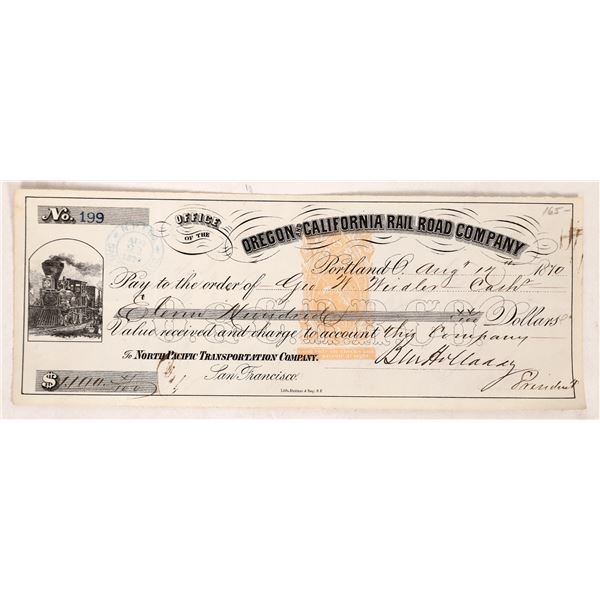 No. 199
165-
OFFICE
OF THE
OREGON AND CALIFORNIA RAIL ROAD COMPANY
Portland O. Augt 12th 1870
Pay to the order of Geo W Weidler Cashr
Eleven Hundred xx/100 Dollars
Value received and charge to account this Company
To NORTH PACIFIC TRANSPORTATION COMPANY.
Ben Holladay
San Francisco.
President
$1100.